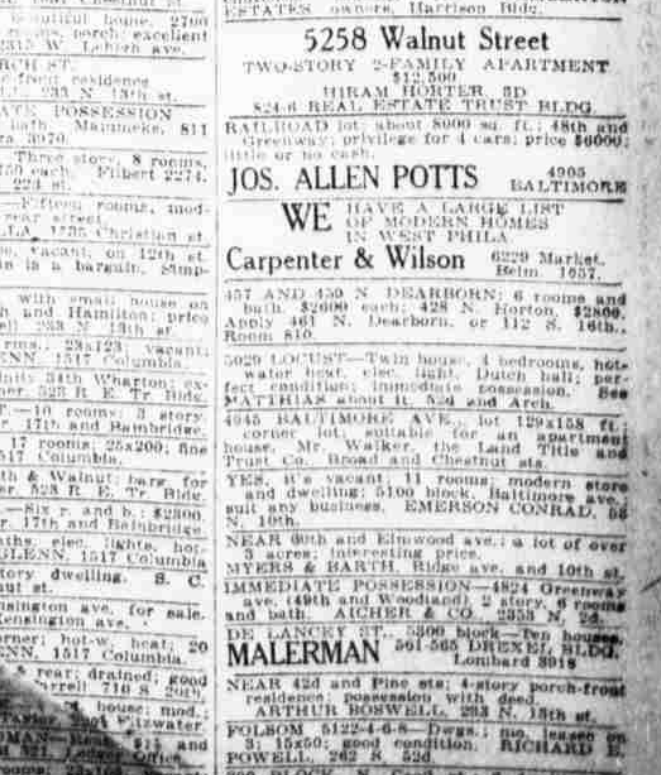 beautiful home, 2700
porch; excellent
2315 W. Lehigh ave.
residence
233 N. 13th st.
POSSESSION
bath. Mammeks, 811
3970.
Three story, 8 rooms,
each. Filbert 2274.
22d st.
Fifteen rooms, mod-
rear street.
1535 Christian st.
vacant; on 12th st.
is a bargain. Simp-
with small house on
and Hamilton; price
233 N. 13th st.
23x123; vacant;
1517 Columbia.
34th Wharton; ex-
523 R. E. Tr. Bldg.
—10 rooms; 3 story.
17th and Bainbridge.
17 rooms; 25x200; fine
1517 Columbia.
& Walnut; barg. for
523 R. E. Tr. Bldg.
—Six r. and b.; $2300
17th and Bainbridge.
elec. lights, hot-
GLENN, 1517 Columbia
dwelling. S. C.
st.
ave. for sale.
Kensington ave.
hot-w. heat; 20
1517 Columbia.
rear; drained; good
710 S. 20th.
house; mod.;
Fitzwater.
$15 and
Ledger Office.
ESTATES owners. Harrison Bldg.
5258 Walnut Street
TWO-STORY 2-FAMILY APARTMENT
$12,500
HIRAM HORTER, 3D
824-6 REAL ESTATE TRUST BLDG.
RAILROAD lot; about 8000 sq. ft.; 48th and
Greenway; privilege for 4 cars; price $6000;
little or no cash.
JOS. ALLEN POTTS 4905
BALTIMORE
WE HAVE A LARGE LIST
OF MODERN HOMES
IN WEST PHILA.
Carpenter & Wilson 6229 Market.
Belm. 1657.
457 AND 459 N. DEARBORN; 6 rooms and
bath. $2600 each; 428 N. Horton, $2800.
Apply 461 N. Dearborn, or 112 S. 16th.,
Room 810.
5029 LOCUST—Twin house, 4 bedrooms, hot-
water heat, elec. light. Dutch hall; per-
fect condition; immediate possession. See
MATTHIAS about it, 52d and Arch.
4945 BALTIMORE AVE., lot 129x158 ft.;
corner lot; suitable for an apartment
house. Mr. Walker, the Land Title and
Trust Co., Broad and Chestnut sts.
YES, it's vacant; 11 rooms; modern store
and dwelling; 5100 block, Baltimore ave.;
suit any business. EMERSON CONRAD, 58
N. 10th.
NEAR 60th and Elmwood ave.; a lot of over
3 acres; interesting price.
MYERS & BARTH, Ridge ave. and 10th st.
IMMEDIATE POSSESSION—4824 Greenway
ave. (49th and Woodland) 2 story, 6 rooms
and bath. AICHER & CO., 2353 N. 2d.
DE LANCEY ST., 5300 block—Ten houses.
MALERMAN 561-565 DREXEL BLDG.
Lombard 3918
NEAR 42d and Pine sts; 4-story porch-front
residence; possession with deed.
ARTHUR BOSWELL, 233 N. 13th st.
FOLSOM 5122-4-6-8—Dwgs.; mo. leases on
3; 15x50; good condition. RICHARD E.
POWELL, 262 S. 52d.